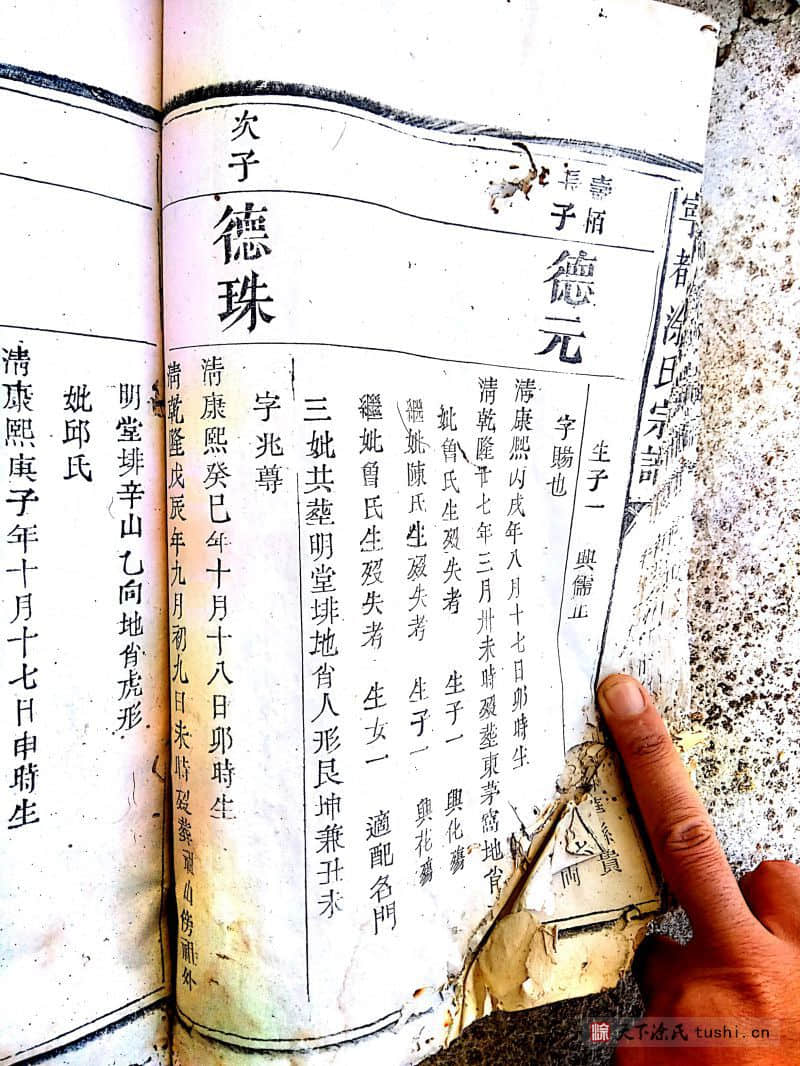 寧都涂氏宗譜
生子一　興儒止
壽栢
長子
德元
字賜也
清康熙丙戌年八月十七日卯時生
清乾隆廿七年三月卅未時歿塟東茅窩地省
妣曾氏生歿失考　生子一　興化殤
繼妣陳氏生歿失考　生子一　興花殤
繼妣曾氏生歿失考　生女一　適配名門
三妣共塟明堂排地省人形艮坤兼丑未
次子
德珠
字兆尊
清康熙癸巳年十月十八日卯時生
清乾隆戊辰年九月初九日未時歿葬　山傍祖外
明堂排辛山乙向地省虎形
妣邱氏
清康熙庚子年十月十七日申時生
貴
両
涂 天下涂氏 tushi.cn